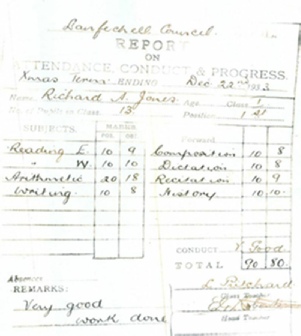 Llanfechell Council.
REPORT
ON
ATTENDANCE, CONDUCT & PROGRESS.
Xmas Term ENDING Dec 22nd 1933
Name Richard A. Jones Age Class 1
No. of Pupils in Class 13 Position 1st
SUBJECTS. MARKS Forward
POS. OBT.
Reading E. 10 9 Composition 10 8
" W. 10 10 Dictation 10 8
Arithmetic 20 18 Recitation 10 9
Writing. 10 8 History 10 10
CONDUCT V. Good
TOTAL 90. 80.
Absences
REMARKS: L. Pritchard
Class Teacher
Very good
work done
Head Teacher